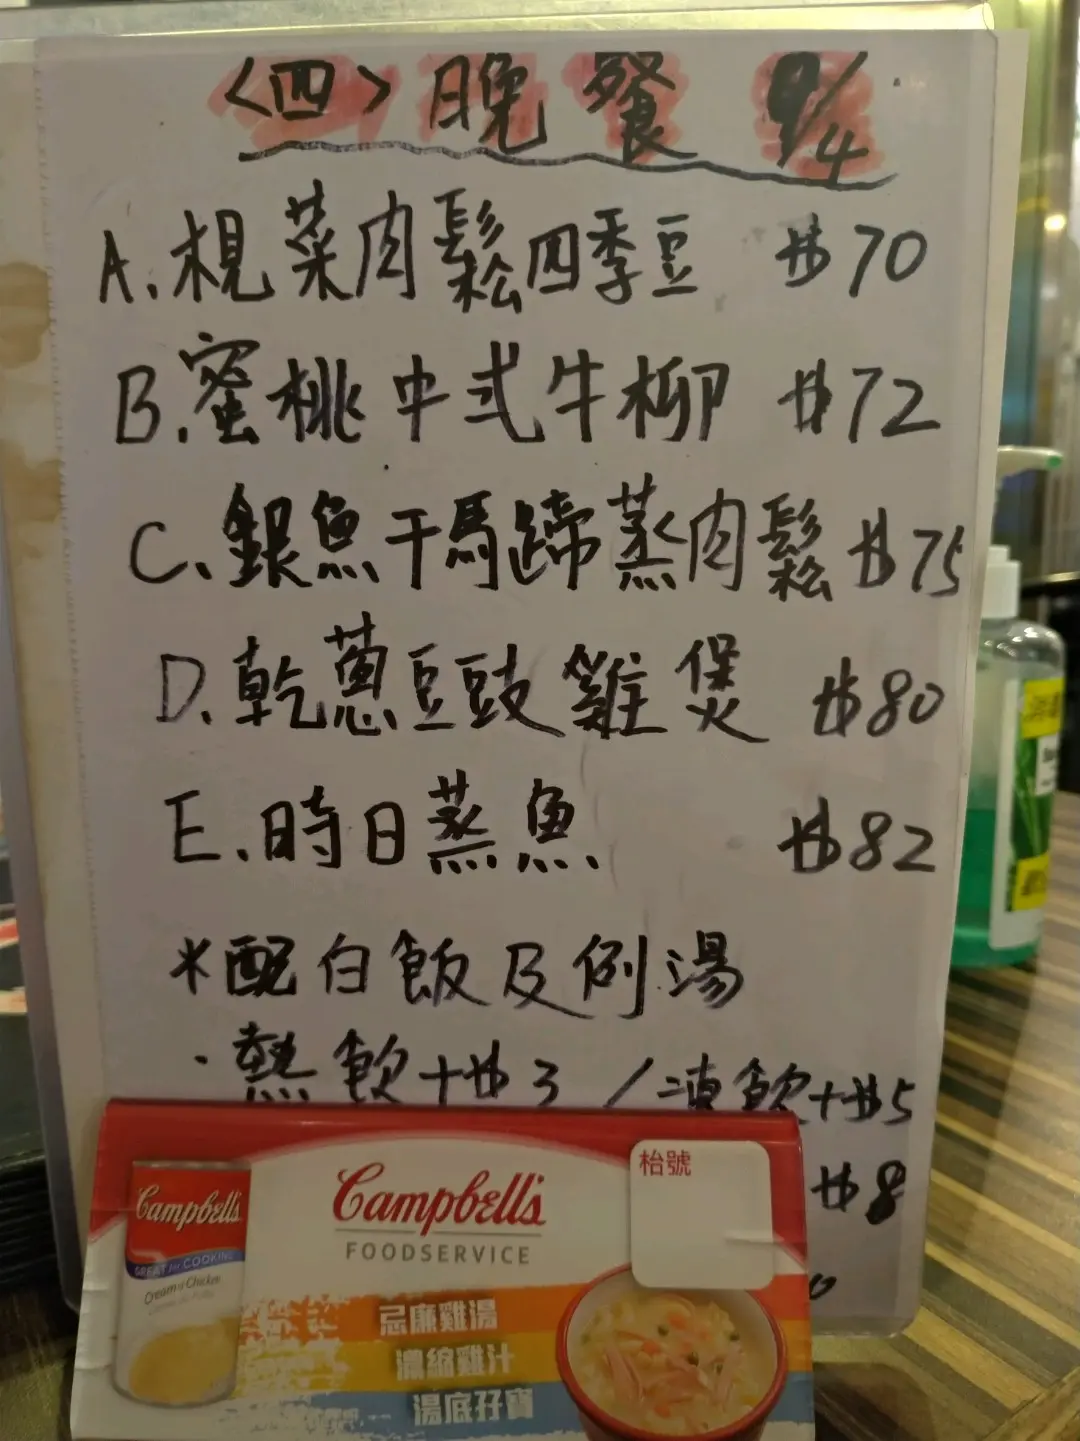 <四>晚餐 9/4
A.梘菜肉鬆四季豆 $70
B.蜜桃中式牛柳 $72
C.銀魚干馬蹄蒸肉鬆 $75
D.乾蔥豆豉雞煲 $80
E.時日蒸魚 $82
*配白飯及例湯
·熱飲+$3/凍飲+$5
$8
Campbell's
FOODSERVICE
枱號
Campbell's
GREAT for COOKING
Cream of Chicken
忌廉雞湯
濃縮雞汁
湯底孖寶